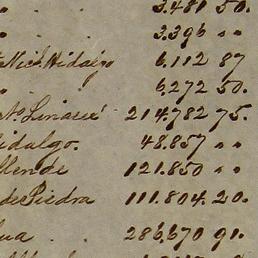 " 3.481 50.
" 3.396 " "
Nich. Hidalgo 6,112 87
" 6,272 50.
Linares 214.782 75.
idalgo. 48.857 " "
llende 121.850 " "
de Piedra 111.804. 20.
ua . 286,670 91.